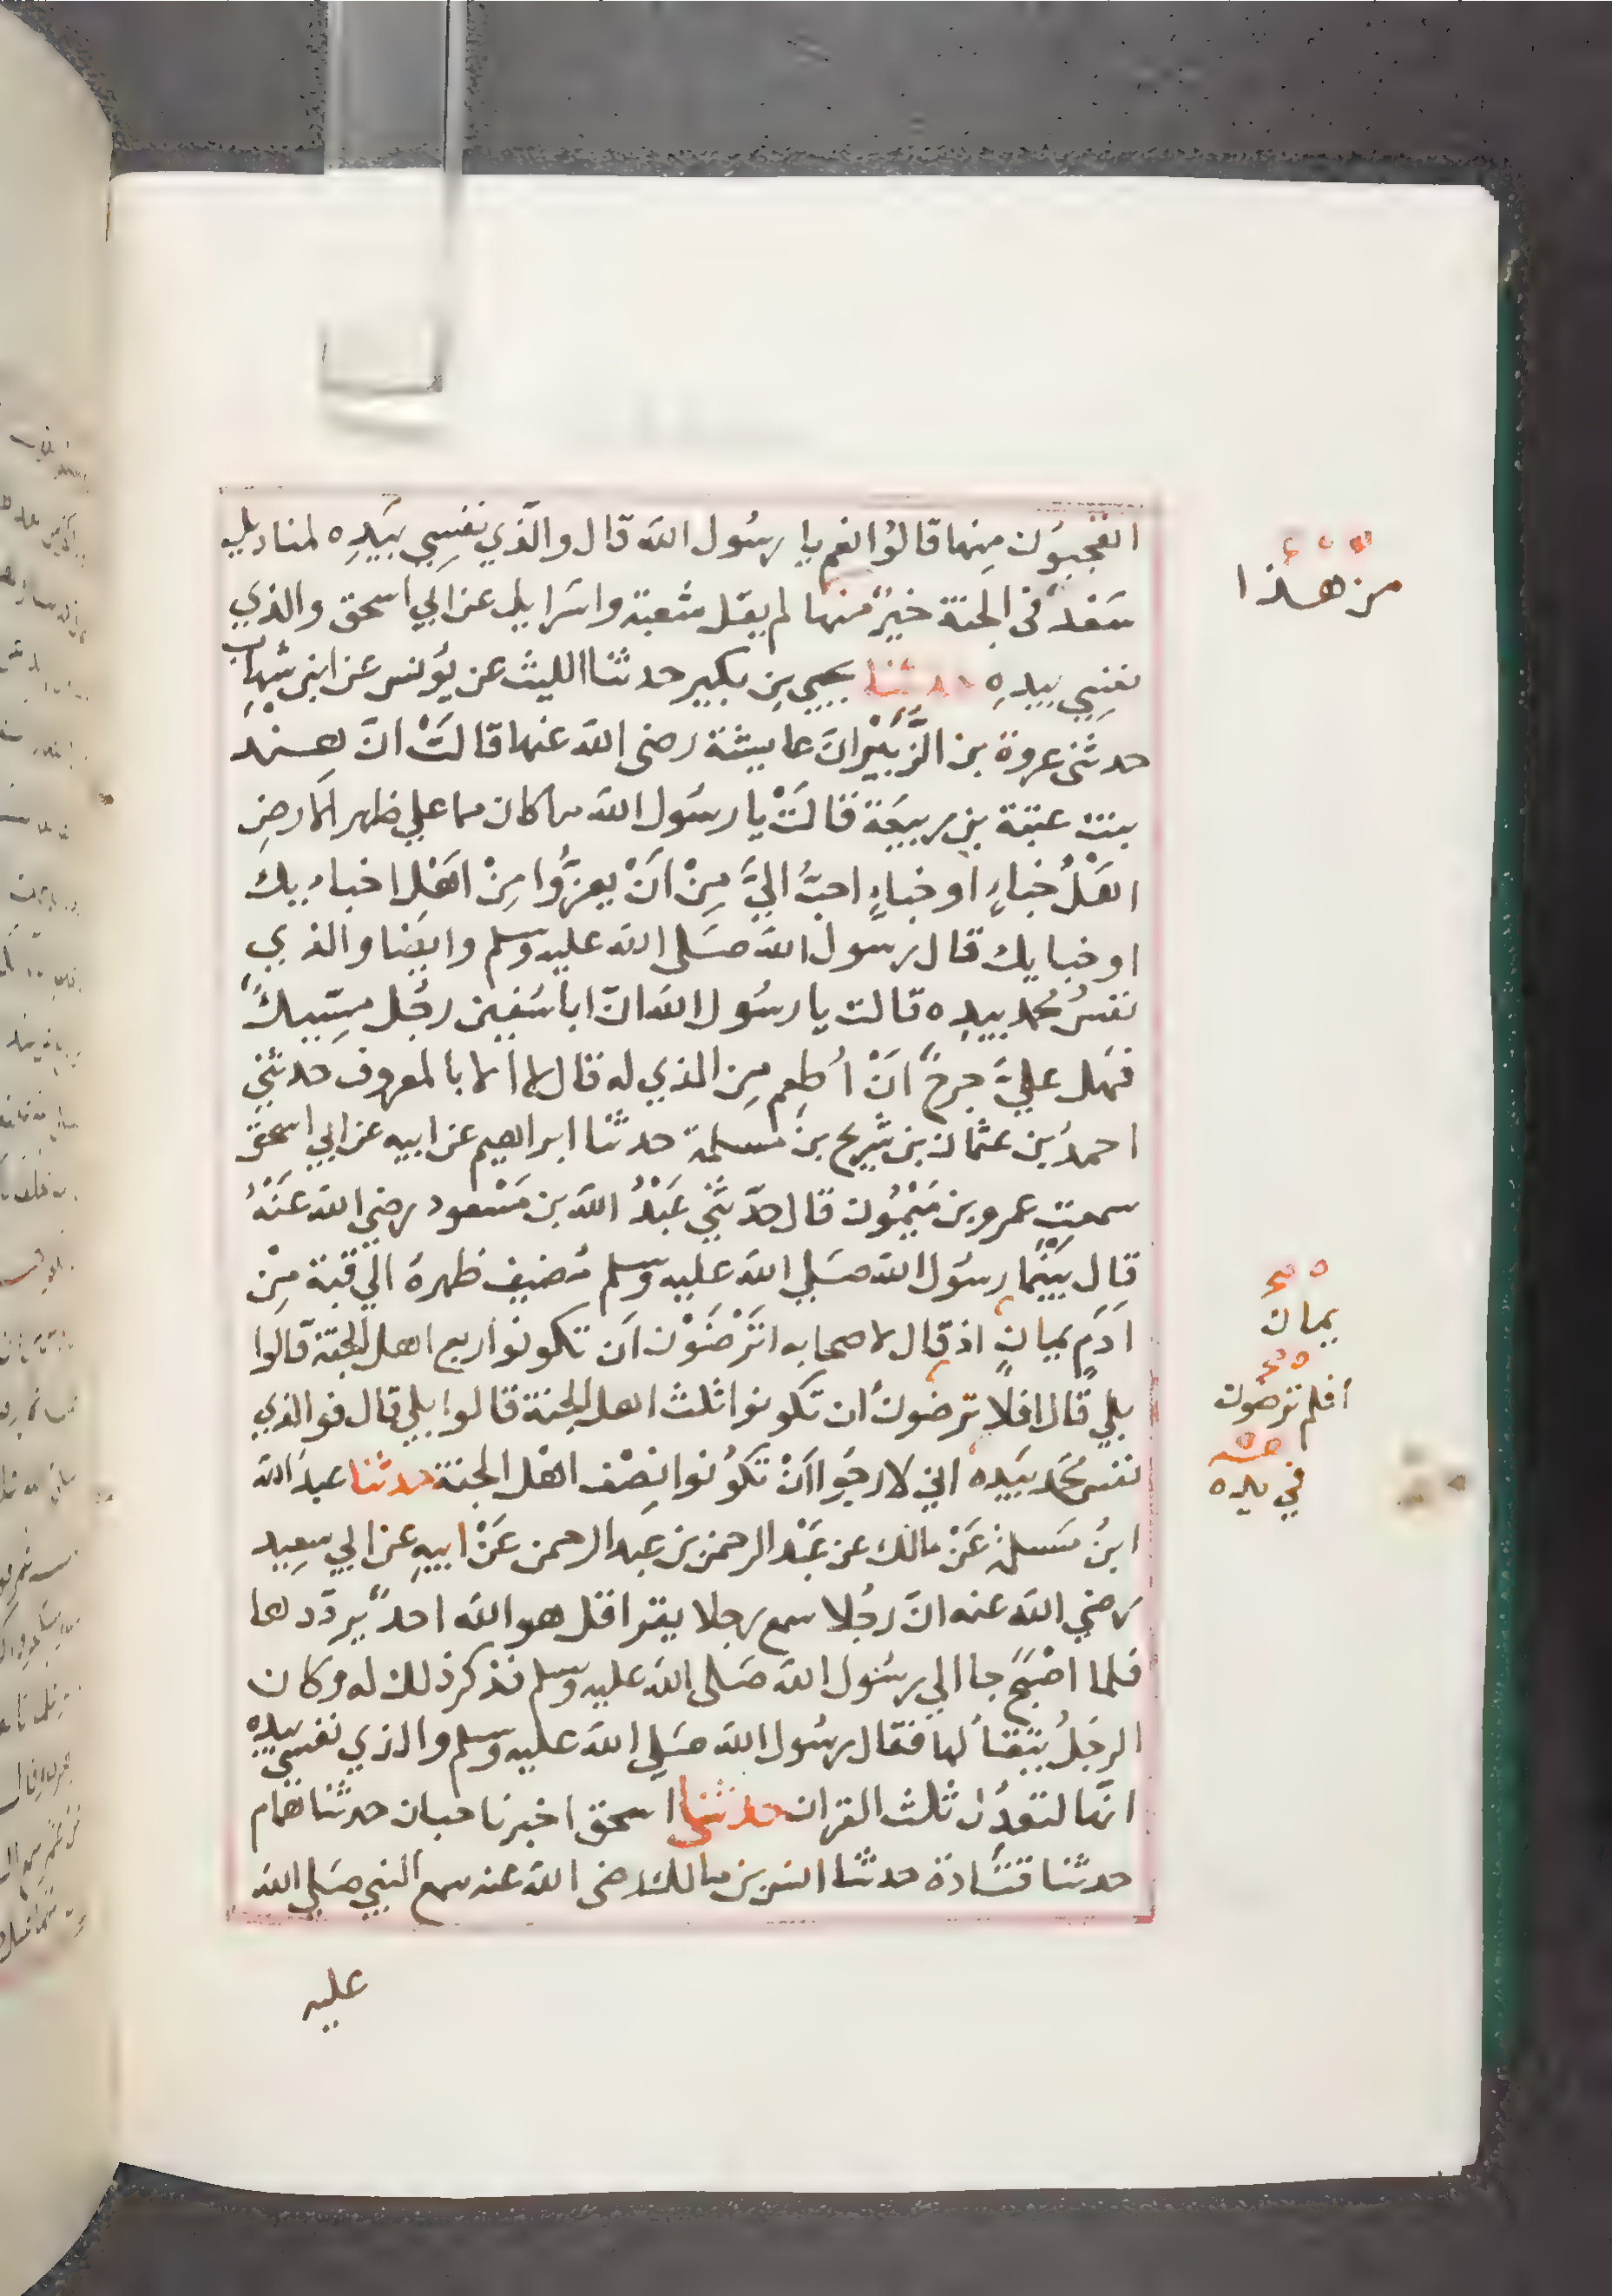 اتعجبون منها قالوا نعم يا رسول الله قال والذي نفسي بيده لمناديل
سعد في الجنة خير منها لم يقل شعبة واسرايل عن ابي اسحق والذي
نفسي بيده حدثنا يحيي بن بكير حدثنا الليث عن يونس عن ابن شهاب
حدثني عروة بن الزبير ان عايشة رضي الله عنها قالت ان هند
بنت عتبة بن ربيعة قالت يا رسول الله ما كان مما علي ظهر الارض
اهل خباء او خباء احب الي من ان يعزوا من اهل اخبايك
او خبايك قال رسول الله صلي الله عليه وسلم وايضا والذي
نفس محمد بيده قالت يا رسول الله ان ابا سفين رجل مسيك
فهل علي حرج ان اطعم من الذي له قال لا الا بالمعروف حدثني
احمد بن عثمان بن شريح بن مسلمة حدثنا ابراهيم عن ابيه عن ابي اسحق
سمعت عمرو بن ميمون قال حدثني عبد الله بن مسعود رضي الله عنه
قال بينما رسول الله صلي الله عليه وسلم مضيف ظهره الي قبة من
ادم يمان اذ قال لاصحابه اترضون ان تكونوا ربع اهل الجنة قالوا
بلي قال افلا ترضون ان تكونوا ثلث اهل الجنة قالوا بلي قال فوالذي
نفس محمد بيده اني لارجوا ان تكونوا نصف اهل الجنة حدثنا عبد الله
ابن مسلمة عن مالك عن عبد الرحمن بن عبد الرحمن عن ابيه عن ابي سعيد
رضي الله عنه ان رجلا سمع رجلا يقرا قل هو الله احد يرددها
فلما اصبح جا الي رسول الله صلي الله عليه وسلم فذكر ذلك له وكان
الرجل يتقالها فقال رسول الله صلي الله عليه وسلم والذي نفسي بيده
انها لتعدل ثلث القران حدثنا اسحق اخبرنا حبان حدثنا همام
حدثنا قتادة حدثنا انس بن مالك رضي الله عنه سمع النبي صلي الله
عليه
من هذا
يمان
أفلم ترضون
في يده